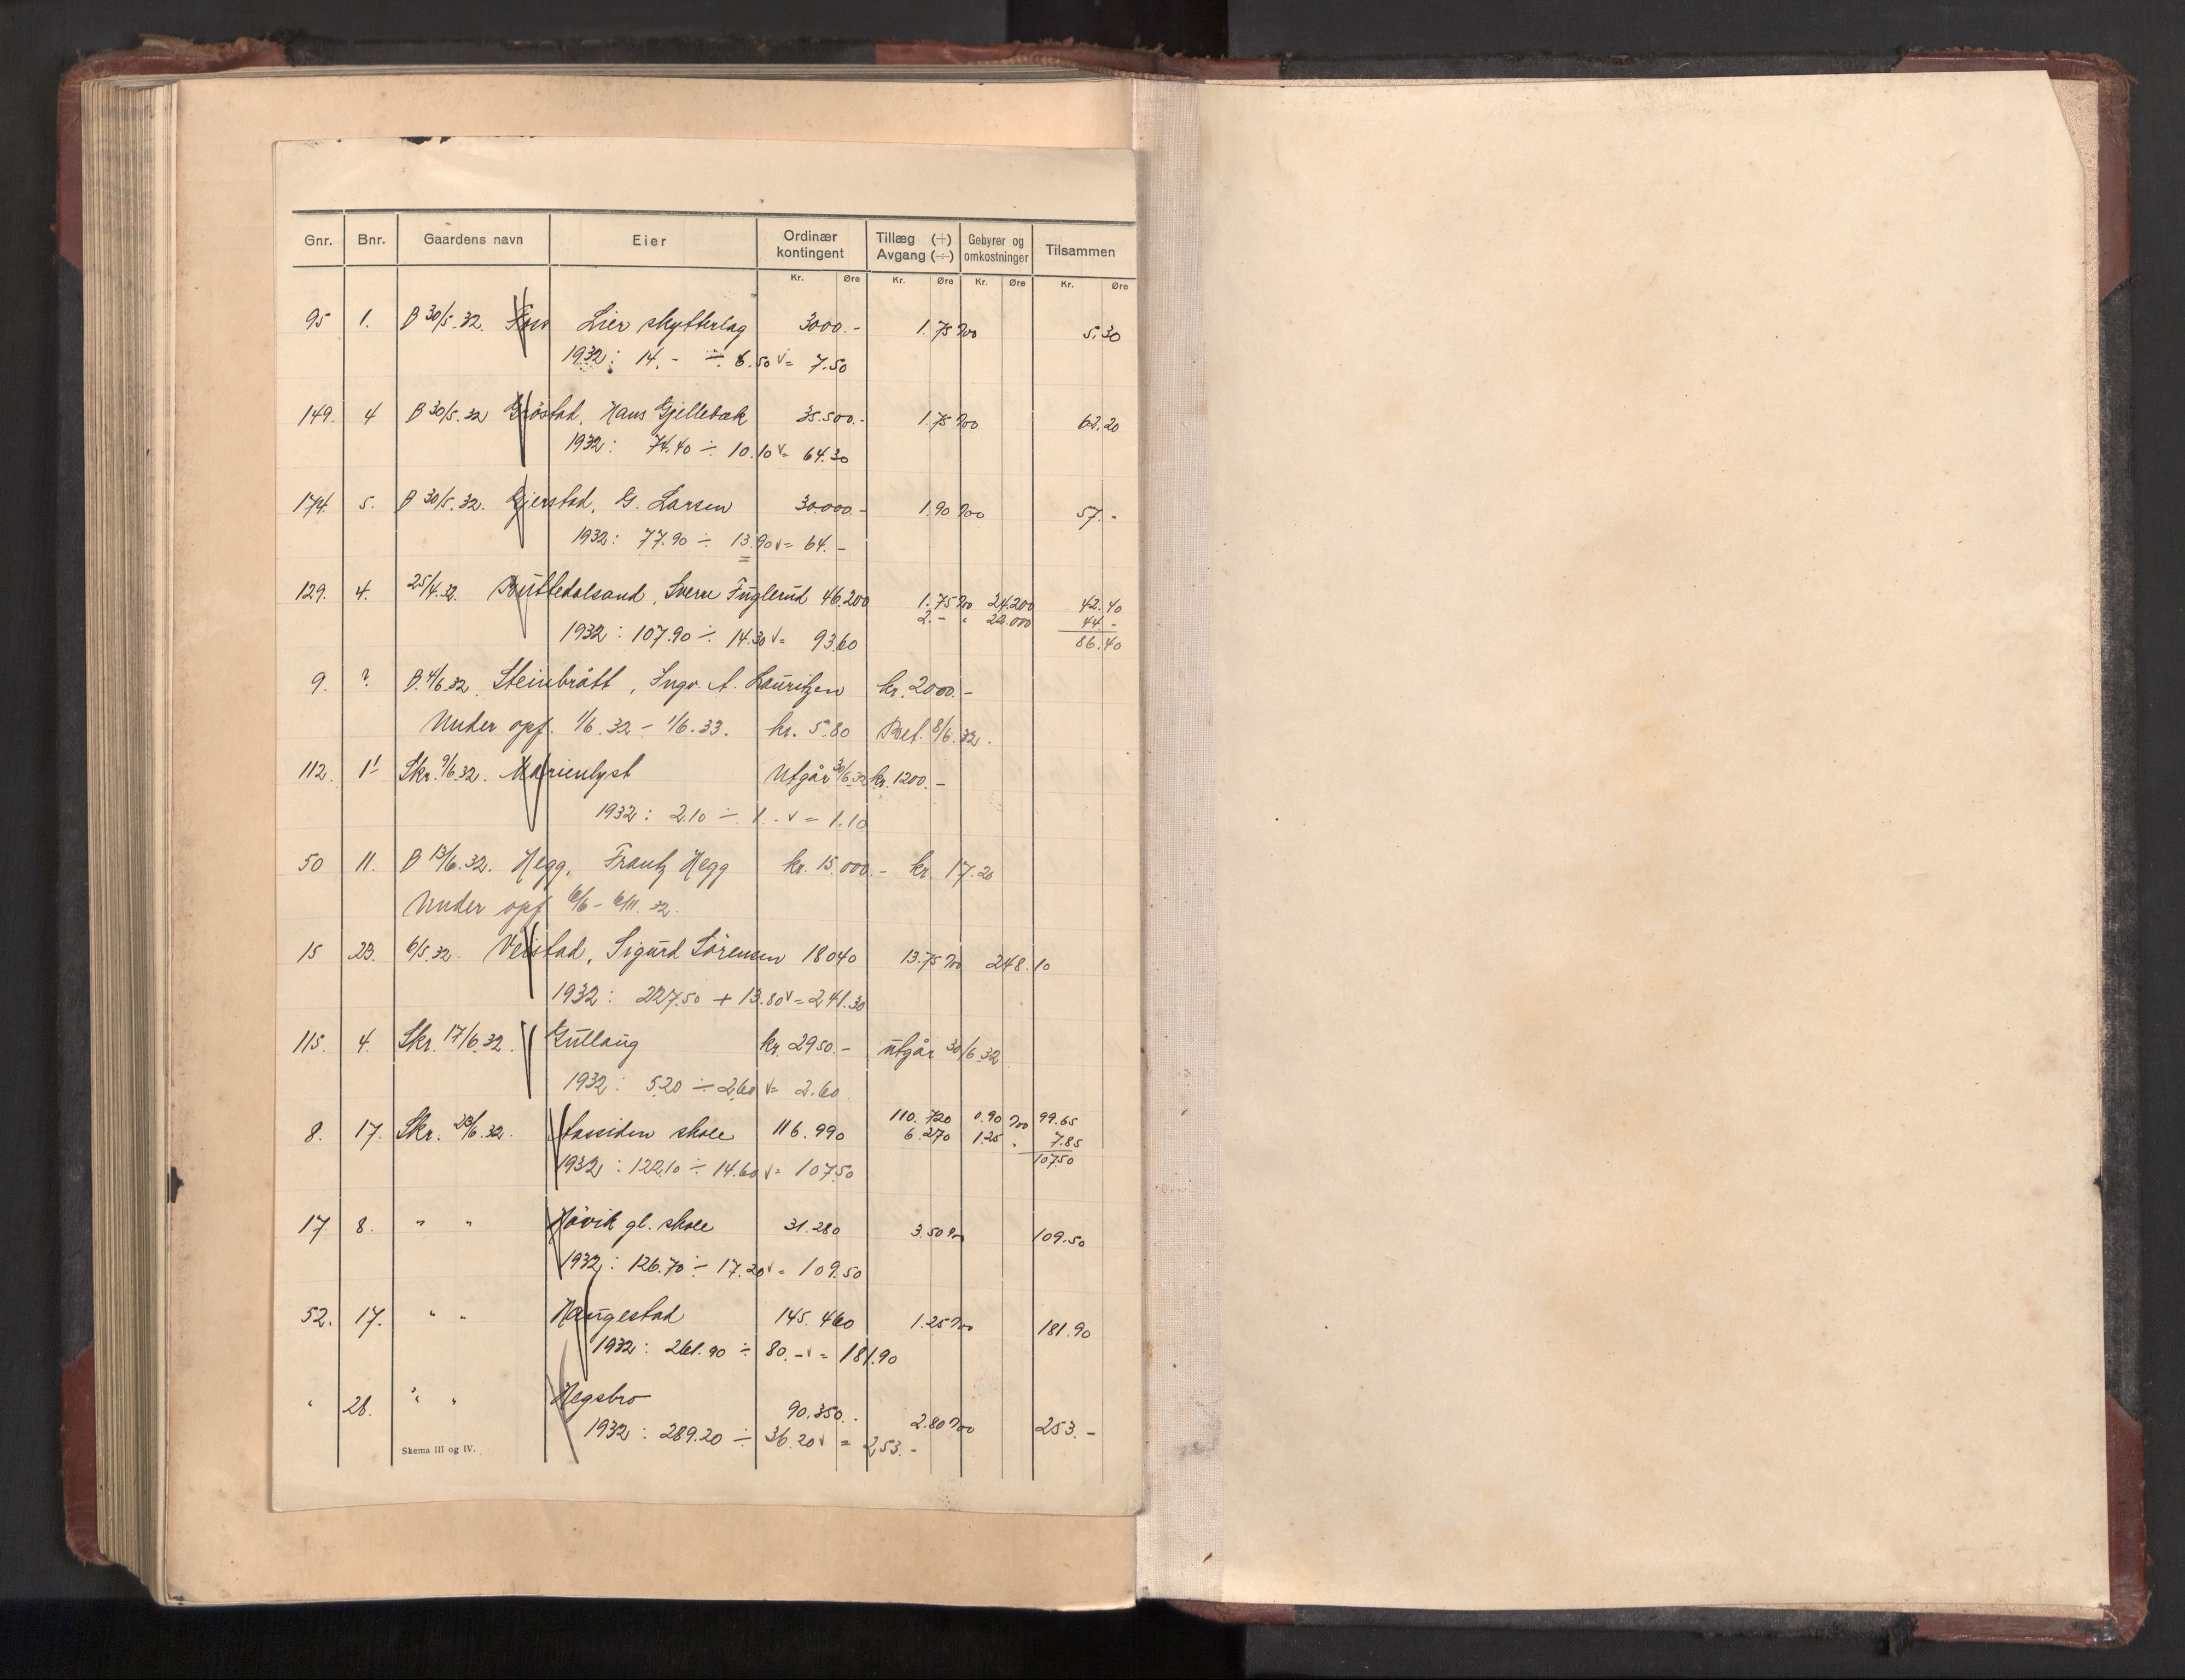 Gnr. Bnr. Gaardens navn Eier Ordinær kontingent Tillæg (+) Avgang (÷) Gebyrer og omkostninger Tilsammen
Kr. Øre Kr. Øre Kr. Øre Kr. Øre
95 1. B 30/5. 32. Lier skytterlag 3000.- 1.75 ‰ 5.30
1932: 14.- ÷ 6.50 v = 7.50
149. 4 B 30/5. 32 Gröstad, Hans Gjellebæk 35.500.- 1.75 ‰ 62.20
1932: 74.40 ÷ 10.10 v = 64.30
174. 5. B 30/5. 32. Gjerstad, G. Larsen 30.000.- 1.90 ‰ 57.-
1932: 77.90 ÷ 13.90 v = 64.-
129. 4. 25/4. 32. Buttedalsand, Sverre Fuglerud 46.200 1.75 ‰ 24.200 42.40
2.- " 22.000 44.-
1932: 107.90 ÷ 14.30 v = 93.60 86.40
9. ? B. 4/6. 32. Steinbrått, Ingv. A. Lauritzen kr. 2000.-
Under opf. 1/6. 32 - 1/6. 33. kr. 5.80 Bet. 8/6. 32.
112. 11 Skr. 9/6. 32. Marienlyst Utgår 30/6. 32 kr. 1200.-
1932: 2.10 ÷ 1.- v = 1.10
50 11. B 13/6. 32. Hegg, Frantz Hegg kr. 15.000.- kr. 17.20
Under opf 6/6 - 6/11. 32.
15 23. 6/5. 32. Veistad, Sigurd Sörensen 18040 13.75 ‰ 248.10
1932: 227.50 + 13.80 v = 241.30
115. 4. Skr. 17/6. 32. Gullaug kr. 2950.- utgår 30/6. 32
1932: 5.20 ÷ 2.60 v = 2.60
8. 17. Skr. 23/6. 32. Stassiden skole 116.990 110.720 0.90 ‰ 99.65
6.270 1.25 " 7.85
1932: 122.10 ÷ 14.60 v = 107.50 107.50
17 8. " " Hövik gl. skole 31.280 3.50 ‰ 109.50
1932: 126.70 ÷ 17.20 v = 109.50
52. 17. " " Haugestad 145.460 1.25 ‰ 181.90
1932: 261.90 ÷ 80.- v = 181.90
" 26. " " Hegsbro 90.350.- 2.80 ‰ 253.-
1932: 289.20 ÷ 36.20 v = 253.-
Skema III og IV.